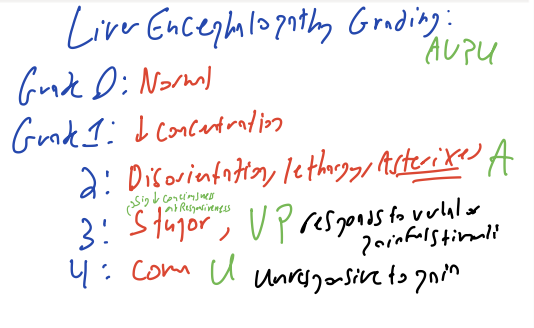 Liver Encephalopathy Grading:
AVPU
Grade 0: Normal
Grade 1: ↓ concentration
2: Disorientation, lethargy, Asterixes A
(Sig ↓ consciousness
not Responsiveness
3: Stupor, VP responds to verbal or
painful stimuli
4: coma U unresponsive to pain